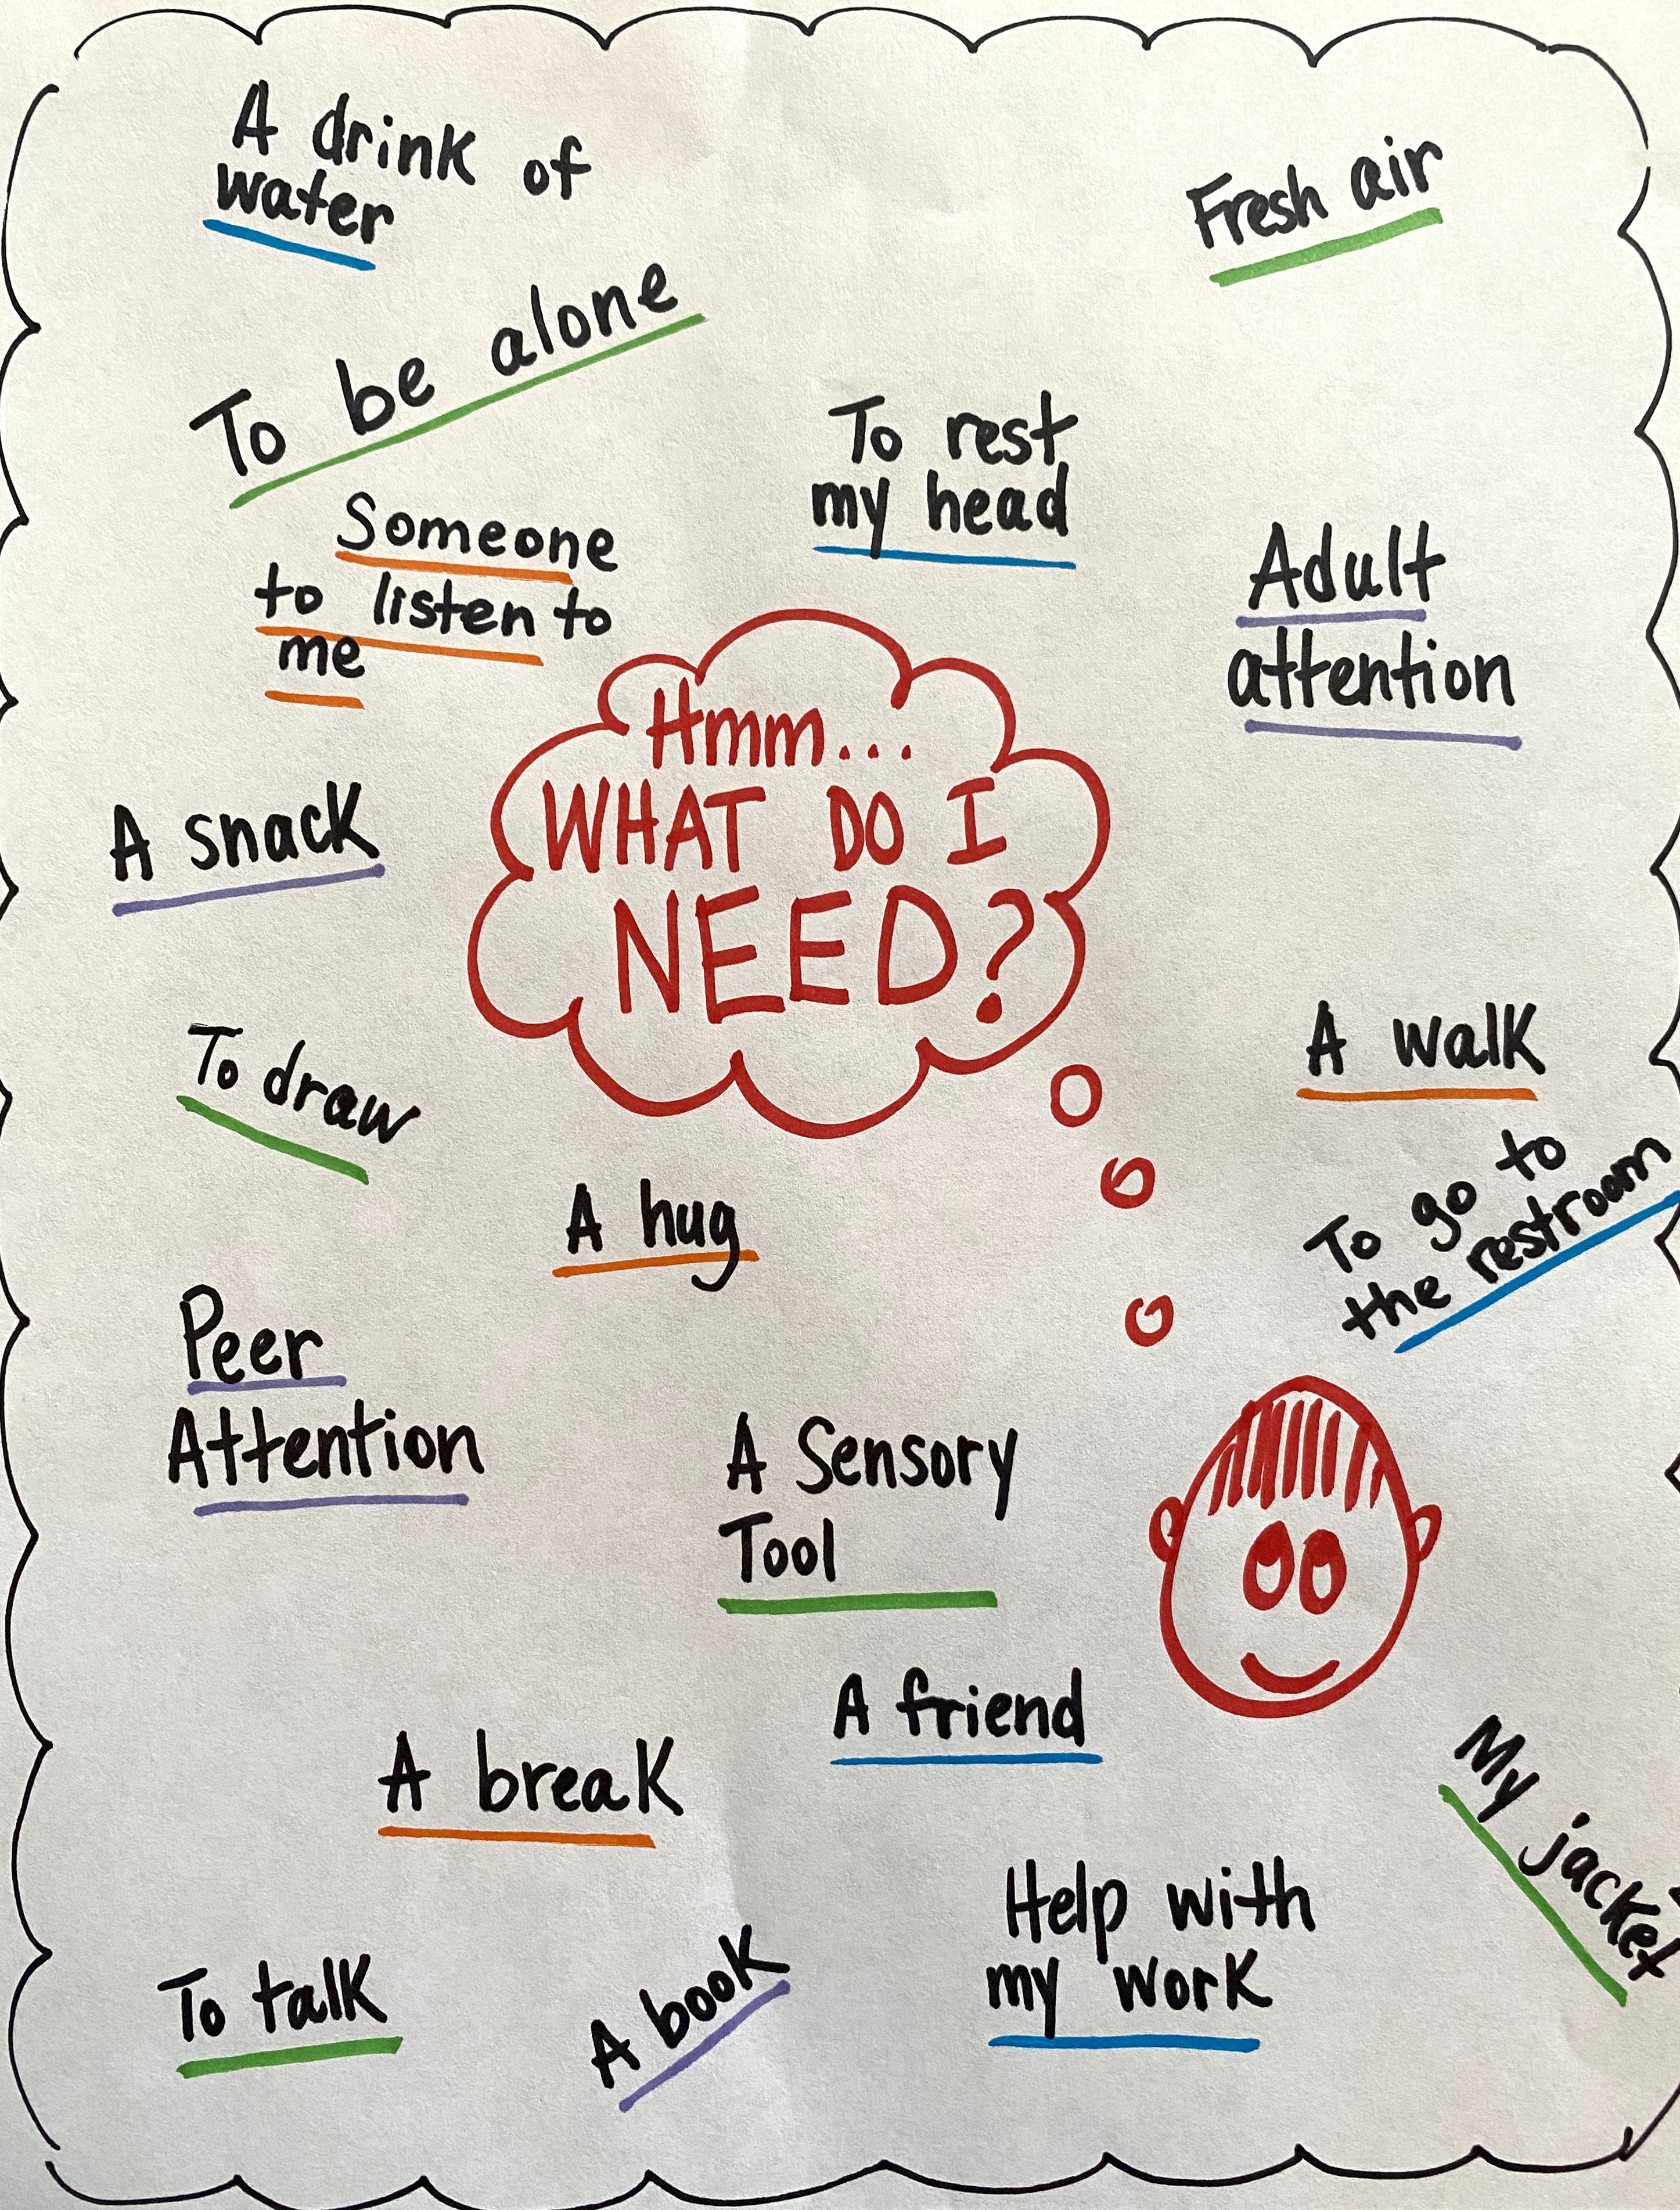 A drink of
water
Fresh air
To be alone
To rest
my head
Someone
to listen to
me
Adult
attention
Hmm...
WHAT DO I
NEED?
A snack
To draw
A walk
A hug
To go to
the restroom
Peer
Attention
A Sensory
Tool
A friend
A break
My jacket
Help with
my work
To talk
A book